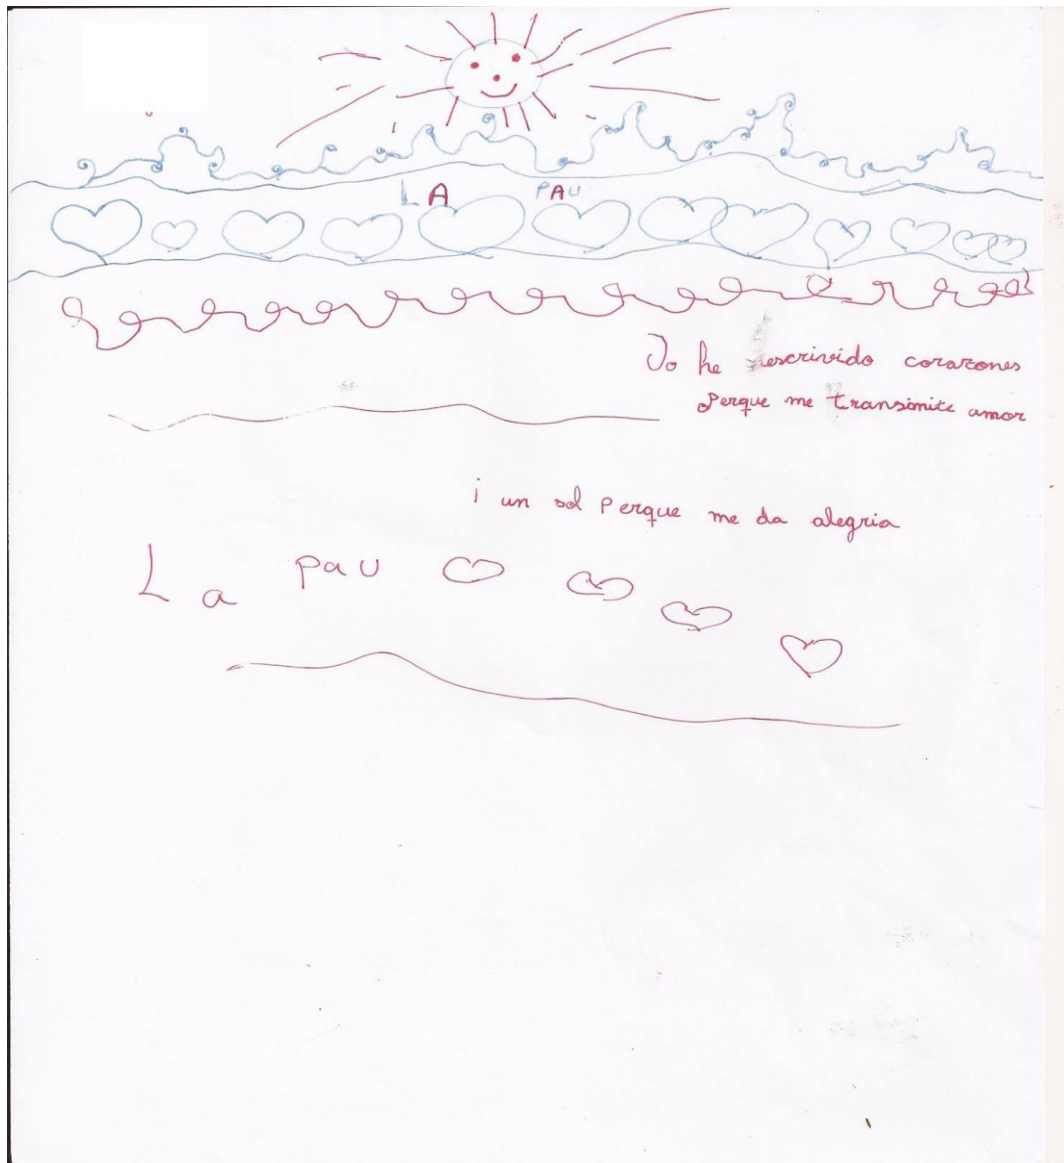 LA PAU
Jo he escrivido corazones
perque me transmite amor
i un sol perque me da alegria
La pau